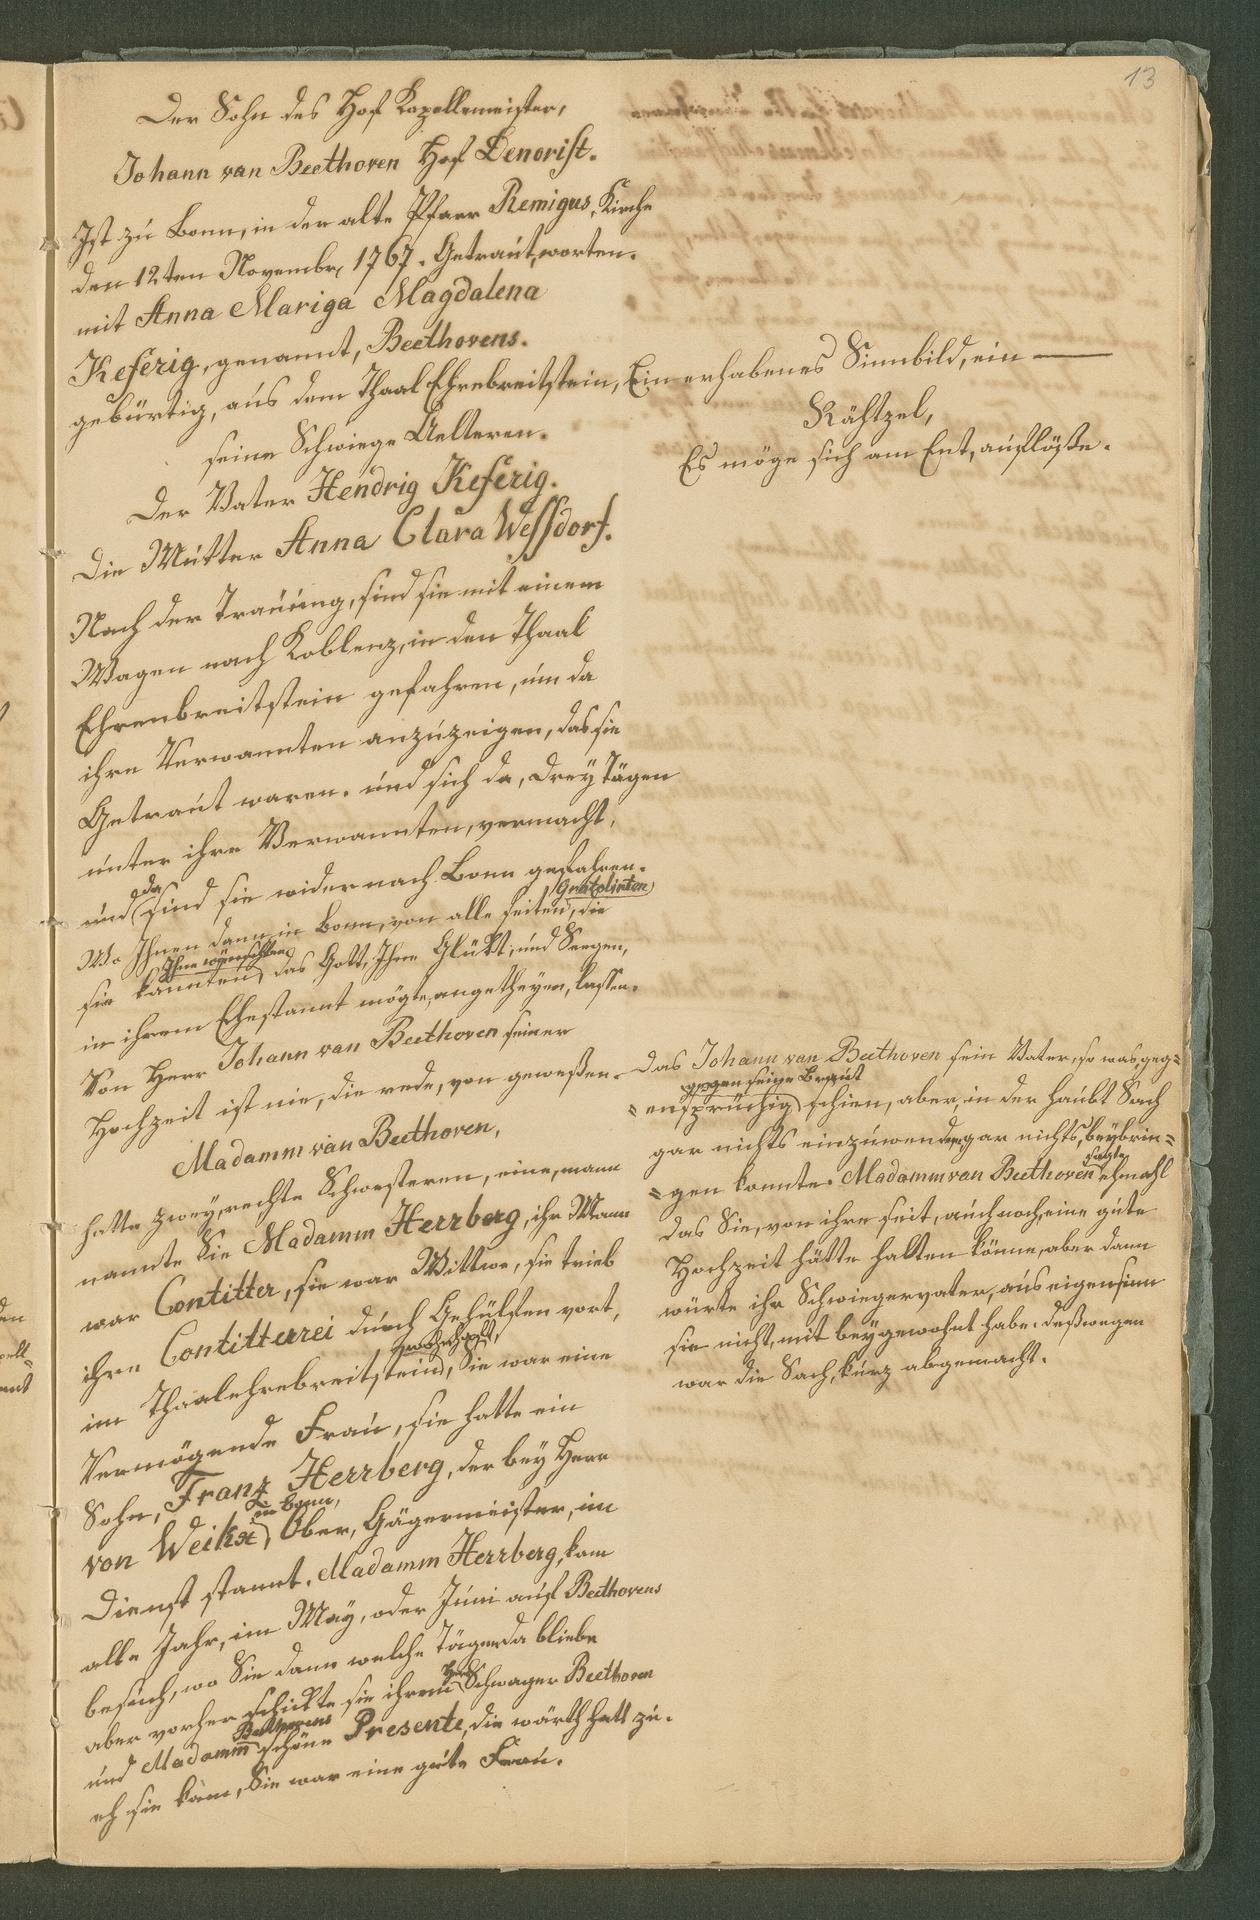 13
Der Sohn des Hof Kapellemeister,
Johann van Beethoven Hof Denorist.
Ist zu Bonn, in der alte Pfarr Remigus, Kirche
den 12ten Novembr, 1767. Getraut, worten.
mit Anna Mariga Magdalena
Keferig, genannt, Beethovens.
gebürtig, aus dem Thaal Ehrebreitstein,
seine Schwiege Aelteren.
Der Vater Hendrig Keferig.
Die Mutter Anna Clara Wessdorf.
Nach der Trauung, sind sie mit einem
Wagen nach Koblenz, in den Thaal
Ehrenbreitstein gefahren, um da
ihre Verwannten anzuzeigen, das sie
Getraut waren. und sich da, drey Tägen
unter ihre Verwannten, vermacht,
da
und sind sie wider nach Bonn gefahren.
Gratolirten
Wo Ihnen dann in Bonn, von alle seiten, die
Ihne wünschten
sie kannten, das Gott, Ihne Glükt, und Seegen,
in ihrem Ehestannt mögte, angetheyen, lassen.
Von Herr Johann van Beethoven seiner
Hochzeit ist nie, die rede, von geweßen.
Madamm van Beethoven,
hatte zwey, rechte Schwesteren, eine, mann
nannte Sie Madamm Herrberg, ihr Mann
war Contitter, sie war Wittwe, sie trieb
ihre Contitterei durch Gehülfen vort,
wohnhaft,
im Thaalehrebreitstein, Sie war eine
Vermögende Frau, sie hatte ein
Sohn, Franz Herrberg, der bey Herr
in Bonn,
von Weikx, Ober, Gägermeister, im
Dienst stannt. Madamm Herrberg, kam
alle Jahr, im May, oder Juni auf Beethovens
besuch, wo Sie dann welche Tägen da bliebe
Herr
aber vorher schickte sie ihrem Schwager Beethoven
Beethovens
und Madamm schöne Presente, die wärth hatt zu.
eh sie kam, Sie war eine gute Frau.
Ein erhabenes Sinnbild, ein
Rähtzel,
Es möge sich am Ent, auflöße.
Das Johann van Beethoven sein Vater, so was geg=
gegen seine Braut
=ensprüchig schien, aber, in der haubt Sach
gar nichts einzuwenden, gar nichts, beybrin=
sagte
=gen konnte. Madamm van Beethoven ehmahl
das Sie, von ihre seit, auch noch, eine gute
Hochzeit hätte halten könne, aber dann
würte ihr Schwiegervater, aus eigensinn
sie nicht, mit beygewohnt habe. deßwegen
war die Sach, kurz abgemacht.